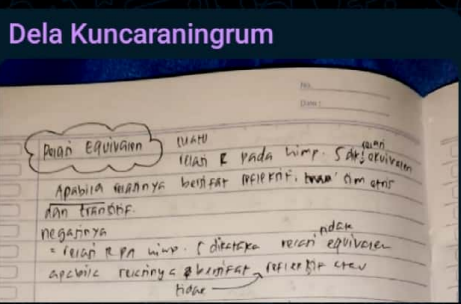 Dela Kuncaraningrum
No.
Date :
Relasi Equivalen suatu
relasi R pada himp. S dikt relasi ekuivalen
Apabila relasinya bersifat refleksif, simetris
dan transitif.
negasinya
= relasi R pd himp. S dikatakan relasi tidak equivalen
apabila relasinya tidak bersifat refleksif atau